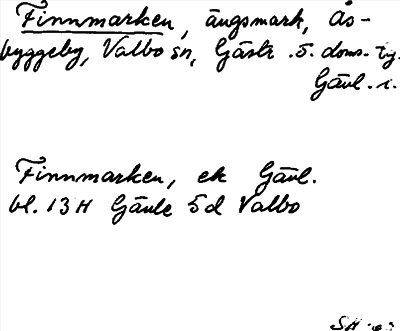 Finnmarken, ängsmark, Ås-
byggeby, Valbo sn, Gästr. s. doms. tg.
Gävl. l.
Finnmarken, ek Gävl.
bl. 13 H Gävle 5d Valbo